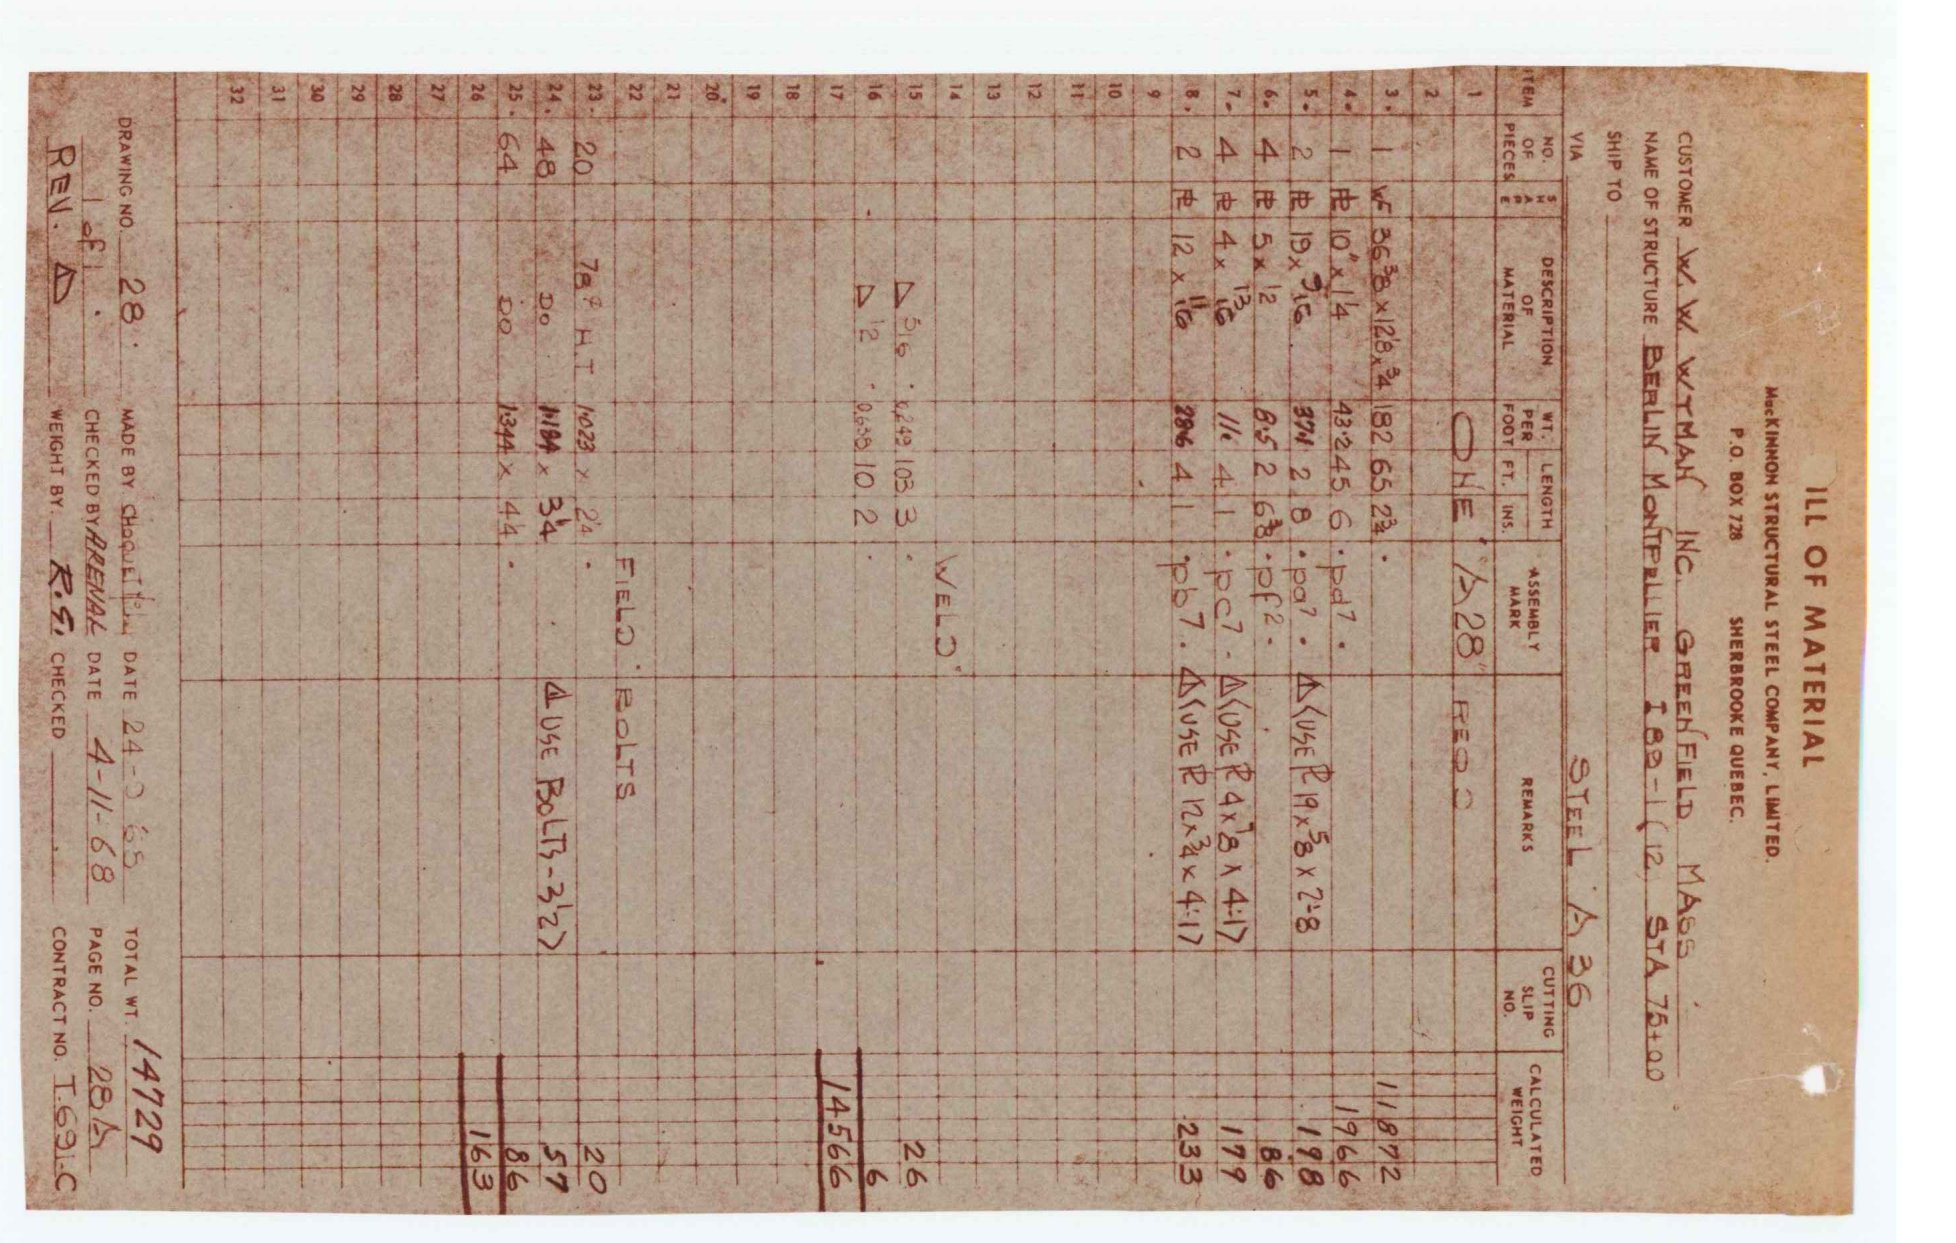 ILL OF MATERIAL
MacKINNON STRUCTURAL STEEL COMPANY, LIMITED.
P.O. BOX 728 SHERBROOKE QUEBEC.
CUSTOMER W.W. WYMAN INC. GREENFIELD MASS.
NAME OF STRUCTURE BERLIN MONTPELLIER I 89-1(12 STA 75+00
SHIP TO
VIA STEEL A 36
ITEM NO. OF PIECES SHAPE DESCRIPTION OF MATERIAL WT. PER FOOT LENGTH FT. INS. ASSEMBLY MARK REMARKS CUTTING SLIP NO. CALCULATED WEIGHT
1 ONE "A28" REQD
2
3. 1 WF 36 3/8 x 12 1/8 x 3/4 182 65 2 3/4 . 11872
4. 1 PL 10" x 1 1/4 43.2 45 6 . pd7 . 1966
5. 2 PL 19 x 9/16 37.1 2 8 . pa7 . △ (USE PL 19 x 5/8 x 2-8 198
6. 4 PL 5 x 1/2 8.5 2 6 3/8 . pf2 . 86
7. 4 PL 4 x 13/16 11.1 4 1 . pc7 . △ (USE PL 4 x 7/8 x 4-1) 179
8. 2 PL 12 x 11/16 28.6 4 1 . pb7 . △ (USE PL 12 x 3/4 x 4-1) 233
9
10
11
12
13
14 WELD
15 △ 5/16 . 0.249 103 3 . 26
16 △ 1/2 . 0.638 10 2 . 6
17 14566
18
19
20
21
22 FIELD BOLTS
23. 20 7/8 φ H.T 1.023 x 2 1/4 . 20
24. 48 DO 1.184 x 3 1/4 △ USE BOLTS - 3 1/2) 57
25. 64 DO 1.344 x 4 1/4 . 86
26 163
27
28
29
30
31
32
DRAWING NO. 28. MADE BY DATE 24-9 68 TOTAL WT. 14729
1 of 1. CHECKED BY ARRENAL DATE 4-11-68 PAGE NO. 28A
REV. △ WEIGHT BY. R.G. CHECKED CONTRACT NO. T.691-C